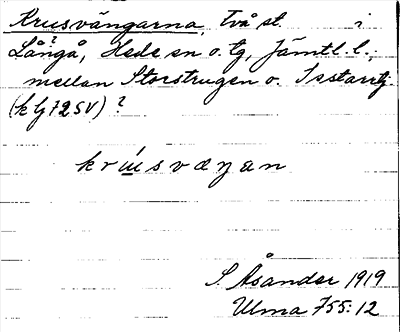 Krusvängarna, Två st. i
Långå, Hede sn o. tg, Jämtl. l.,
mellan Storstrugen o.
(k bj 72 SV)?
krusvæŋan
S. Åsander 1919
Ulma 755:12